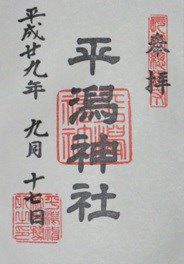 奉拝
平潟神社
平成廿九年 九月 十七日